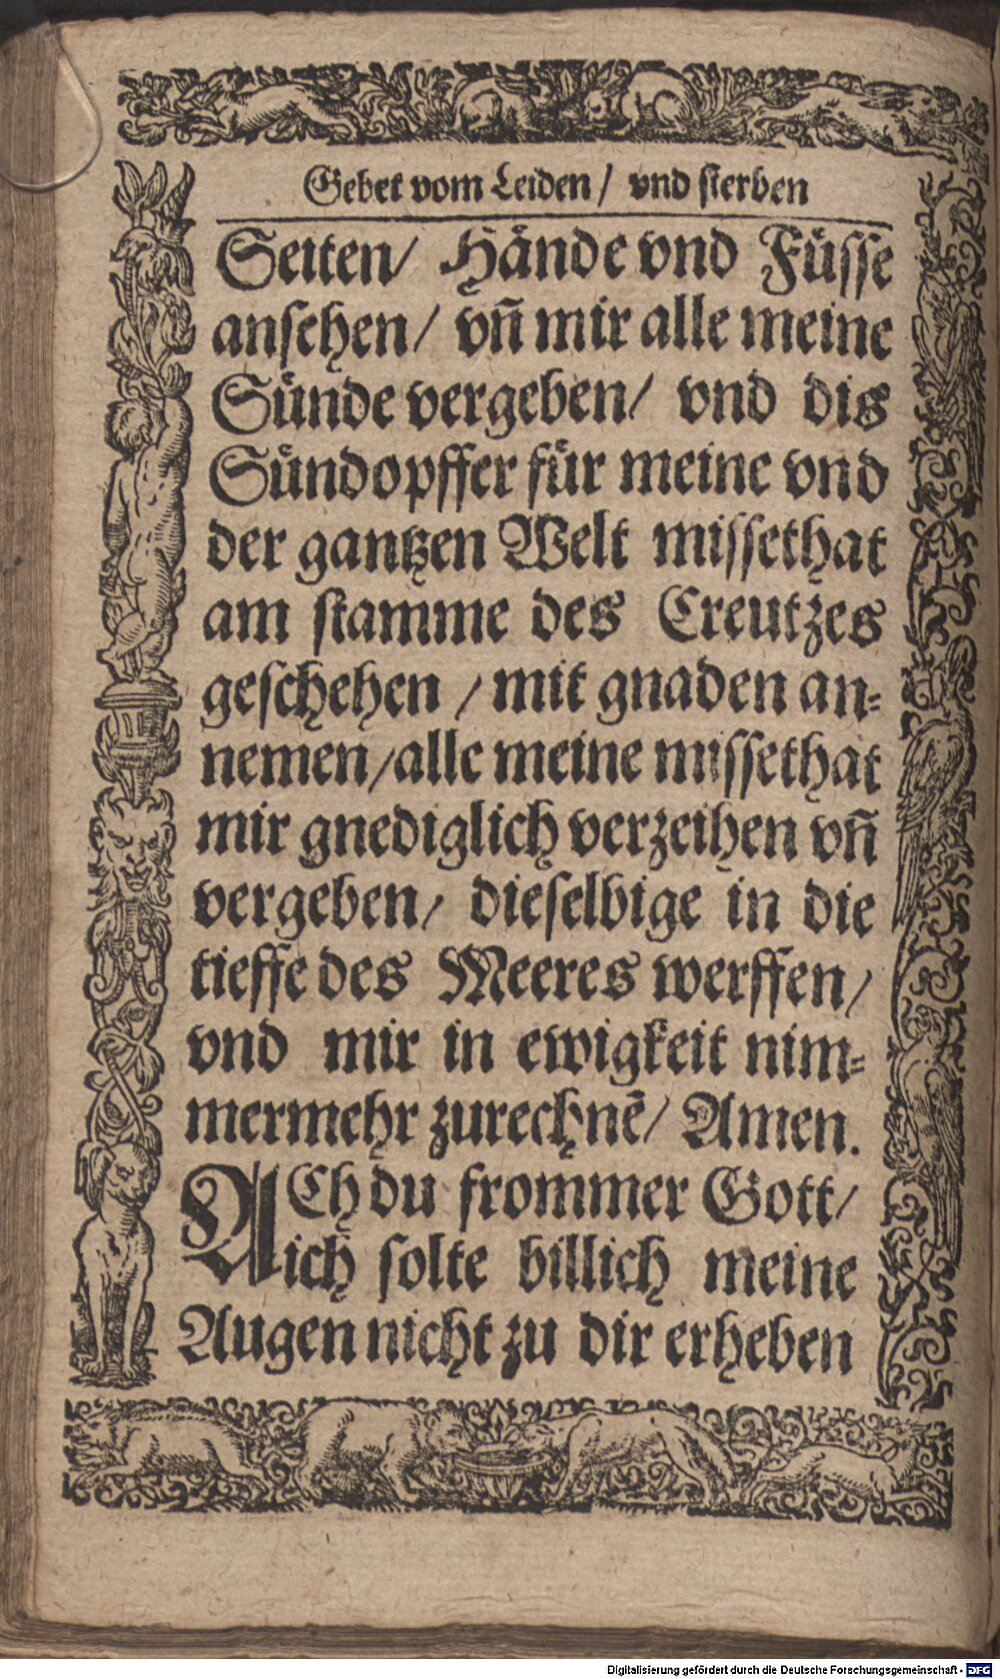 Gebet vom Leiden/ vnd sterben
Seiten/ Hände vnd Füsse
ansehen/ vn̄ mir alle meine
Sünde vergeben/ vnd dis
Sündopffer für meine vnd
der gantzen Welt missethat
am stamme des Creutzes
geschehen / mit gnaden an-
nemen/alle meine missethat
mir gnediglich verzeihen vn̄
vergeben/ dieselbige in die
tieffe des Meeres werffen/
vnd mir in ewigkeit nim-
mermehr zurechnē/ Amen.
ACh du frommer Gott/
ich solte billich meine
Augen nicht zu dir erheben
Digitalisierung gefördert durch die Deutsche Forschungsgemeinschaft - DFG